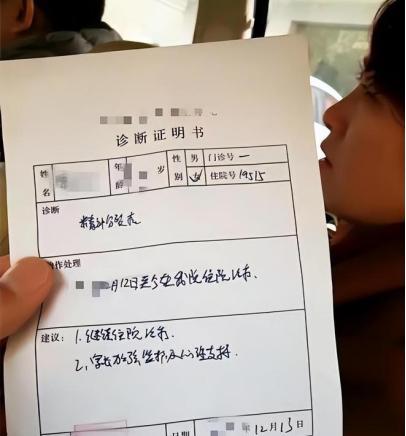 诊断证明书
姓名 年龄 岁 性别 男 女 门诊号 一 住院号 19515
诊断
精神分裂症
操作处理
月12日至今在我院住院治疗.
建议: 1. 继续住院治疗.
2. 家长加强监护及心理支持.
日期 12月13日